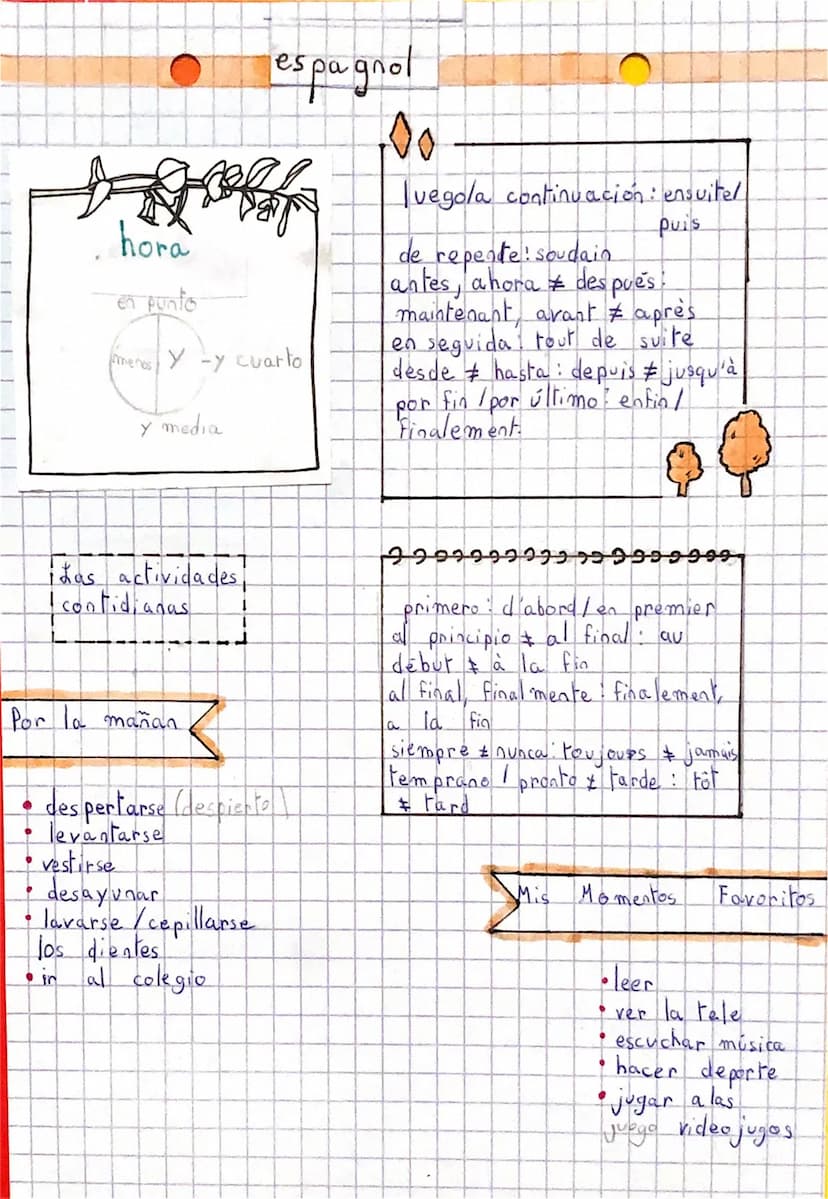 espagnol
hora
en punto
menos y -y cuarto
y media
luego/a continuación : ensuite/
puis
de repente : soudain
antes, ahora ≠ después :
maintenant, avant ≠ après
en seguida : tout de suite
desde ≠ hasta : depuis ≠ jusqu'à
por fin / por último : enfin/
finalement.
Las actividades
contidianas
primero : d'abord / en premier
al principio ≠ al final : au
début ≠ à la fin
al final, finalmente : finalement,
a la fin
siempre ≠ nunca : toujours ≠ jamais
temprano / pronto ≠ tarde : tôt
≠ tard
Por la mañan
• despertarse (despierto)
• levantarse
• vestirse
• desayunar
• lavarse / cepillarse
los dientes
• ir al colegio
Mis Momentos Favoritos
• leer
• ver la tele
• escuchar música
• hacer deporte
• jugar a las
juego videojugos